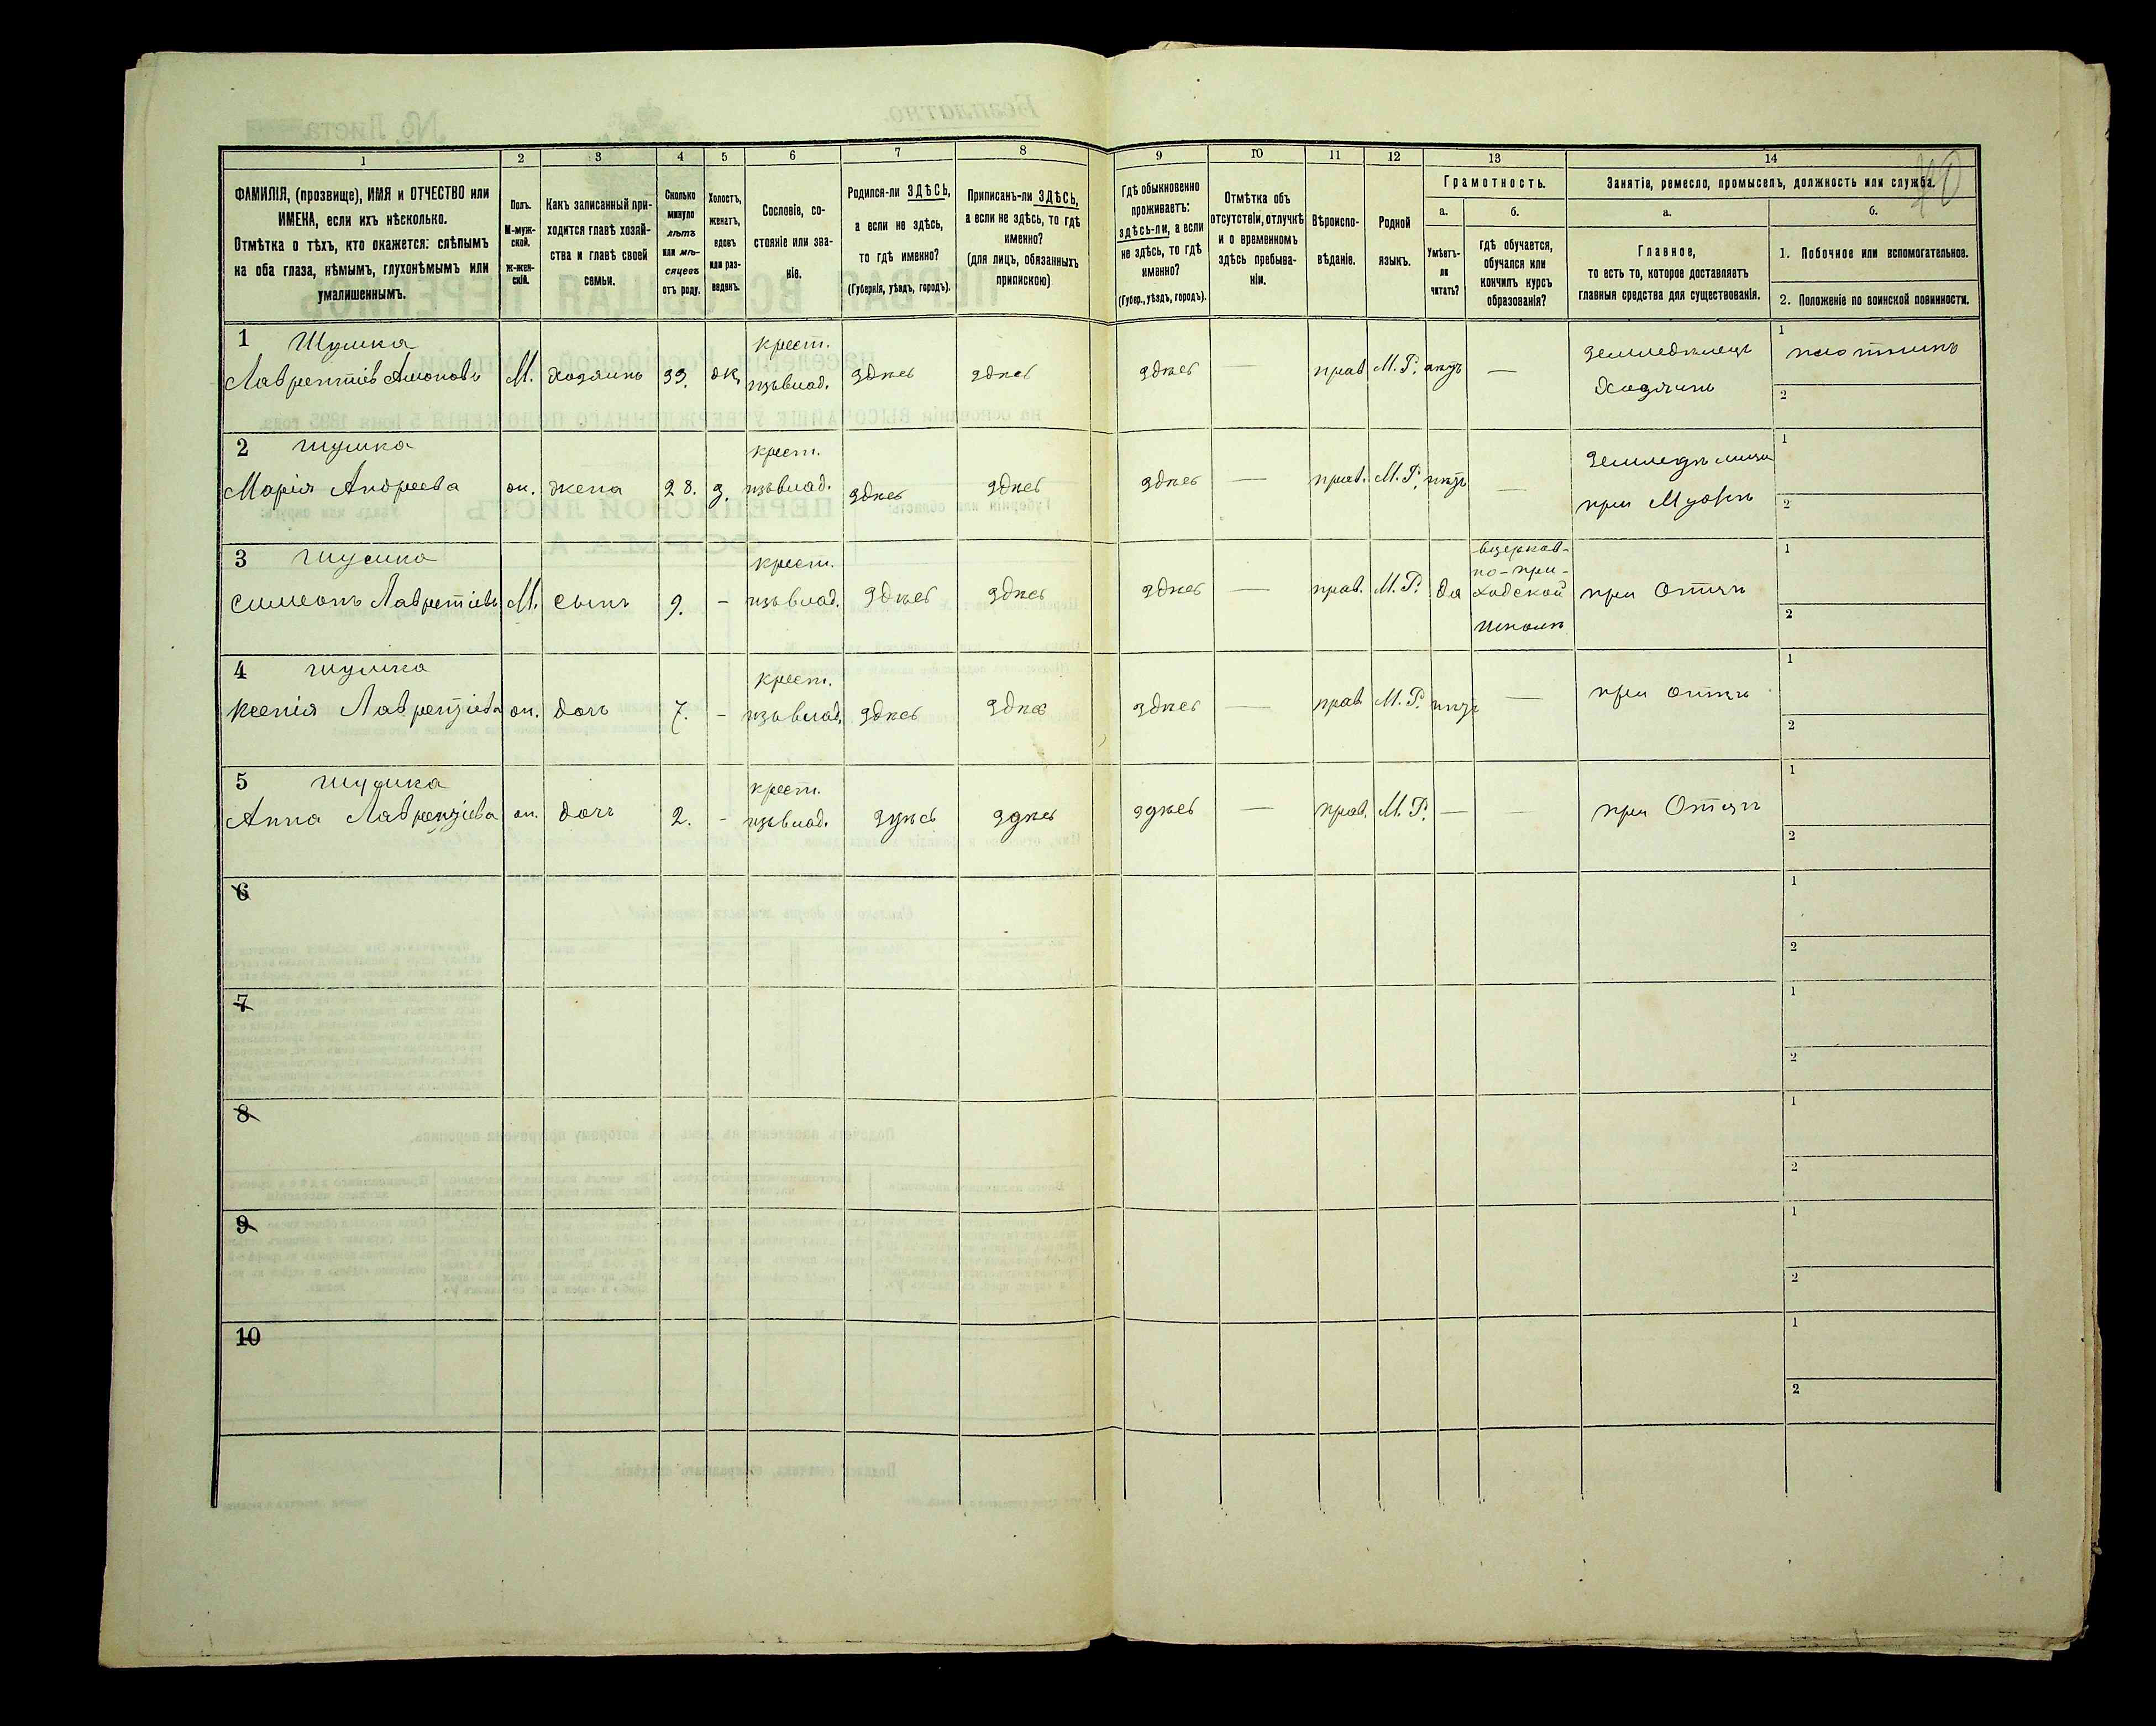 1 2 3 4 5 6 7 8 9 10 11 12 13 14
ФАМИЛІЯ, (прозвище), ИМЯ и ОТЧЕСТВО или
ИМЕНА, если ихъ нѣсколько.
Отмѣтка о тѣхъ, кто окажется: слѣпымъ
на оба глаза, нѣмымъ, глухонѣмымъ или
умалишеннымъ.
Полъ.
М-муж-
ской.
Ж-жен-
скій.
Какъ записанный при-
ходится главѣ хозяй-
ства и главѣ своей
семьи.
Сколько
минуло
лѣтъ
или мѣ-
сяцевъ
отъ роду.
Холостъ,
женатъ,
вдовъ
или раз-
веденъ.
Сословіе, со-
стояніе или зва-
ніе.
Родился-ли ЗДѢСЬ,
а если не здѣсь,
то гдѣ именно?
(Губернія, уѣздъ, городъ).
Приписанъ-ли ЗДѢСЬ,
а если не здѣсь, то гдѣ
именно?
(для лицъ, обязанныхъ
припискою)
Гдѣ обыкновенно
проживаетъ:
здѣсь-ли, а если
не здѣсь, то гдѣ
именно?
(Губер., уѣздъ, городъ).
Отмѣтка объ
отсутствіи, отлучкѣ
и о временномъ
здѣсь пребыва-
ніи.
Вѣроиспо-
вѣданіе.
Родной
языкъ.
Грамотность.
а.
Умѣетъ-
ли
читать?
б.
Гдѣ обучается,
обучался или
кончилъ курсъ
образованія?
Занятіе, ремесло, промыселъ, должность или служба.
а.
Главное,
то есть то, которое доставляетъ
главныя средства для существованія.
б.
1. Побочное или вспомогательное.
2. Положеніе по воинской повинности.
1 Шушка крест. земледѣлецъ 1 плотникъ
Лаврентіев М. Хозяинъ 33. ж. изъ влад. здѣсь здѣсь здѣсь — прав М. Р. нѣтъ — Хозяинъ 2
2 Шушка крест. 1
Марія Андреева ж. жена 28. з. изъ влад. здѣсь здѣсь здѣсь — прав. М. Р. нѣтъ — при Мужѣ 2
3 Шушка крест. в церков-
но-при-
ходской
школѣ
Симеонъ Лаврентіевъ М. сынъ 9. - изъ влад. здѣсь здѣсь здѣсь — прав. М. Р. да при Отцѣ 1 2
4 Шушка крест. 1
Ксенія Лаврентіева ж. дочь 7. - изъ влад. здѣсь здѣсь здѣсь — прав М. Р. нѣтъ — при отцѣ 2
5 Шушка крест. 1
Анна Лаврентіева ж. дочь 2. - изъ влад. здѣсь здѣсь здѣсь — прав. М. Р. — — при Отцѣ 2
6 1
2
7 1
2
8 1
2
9 1
2
10 1
2